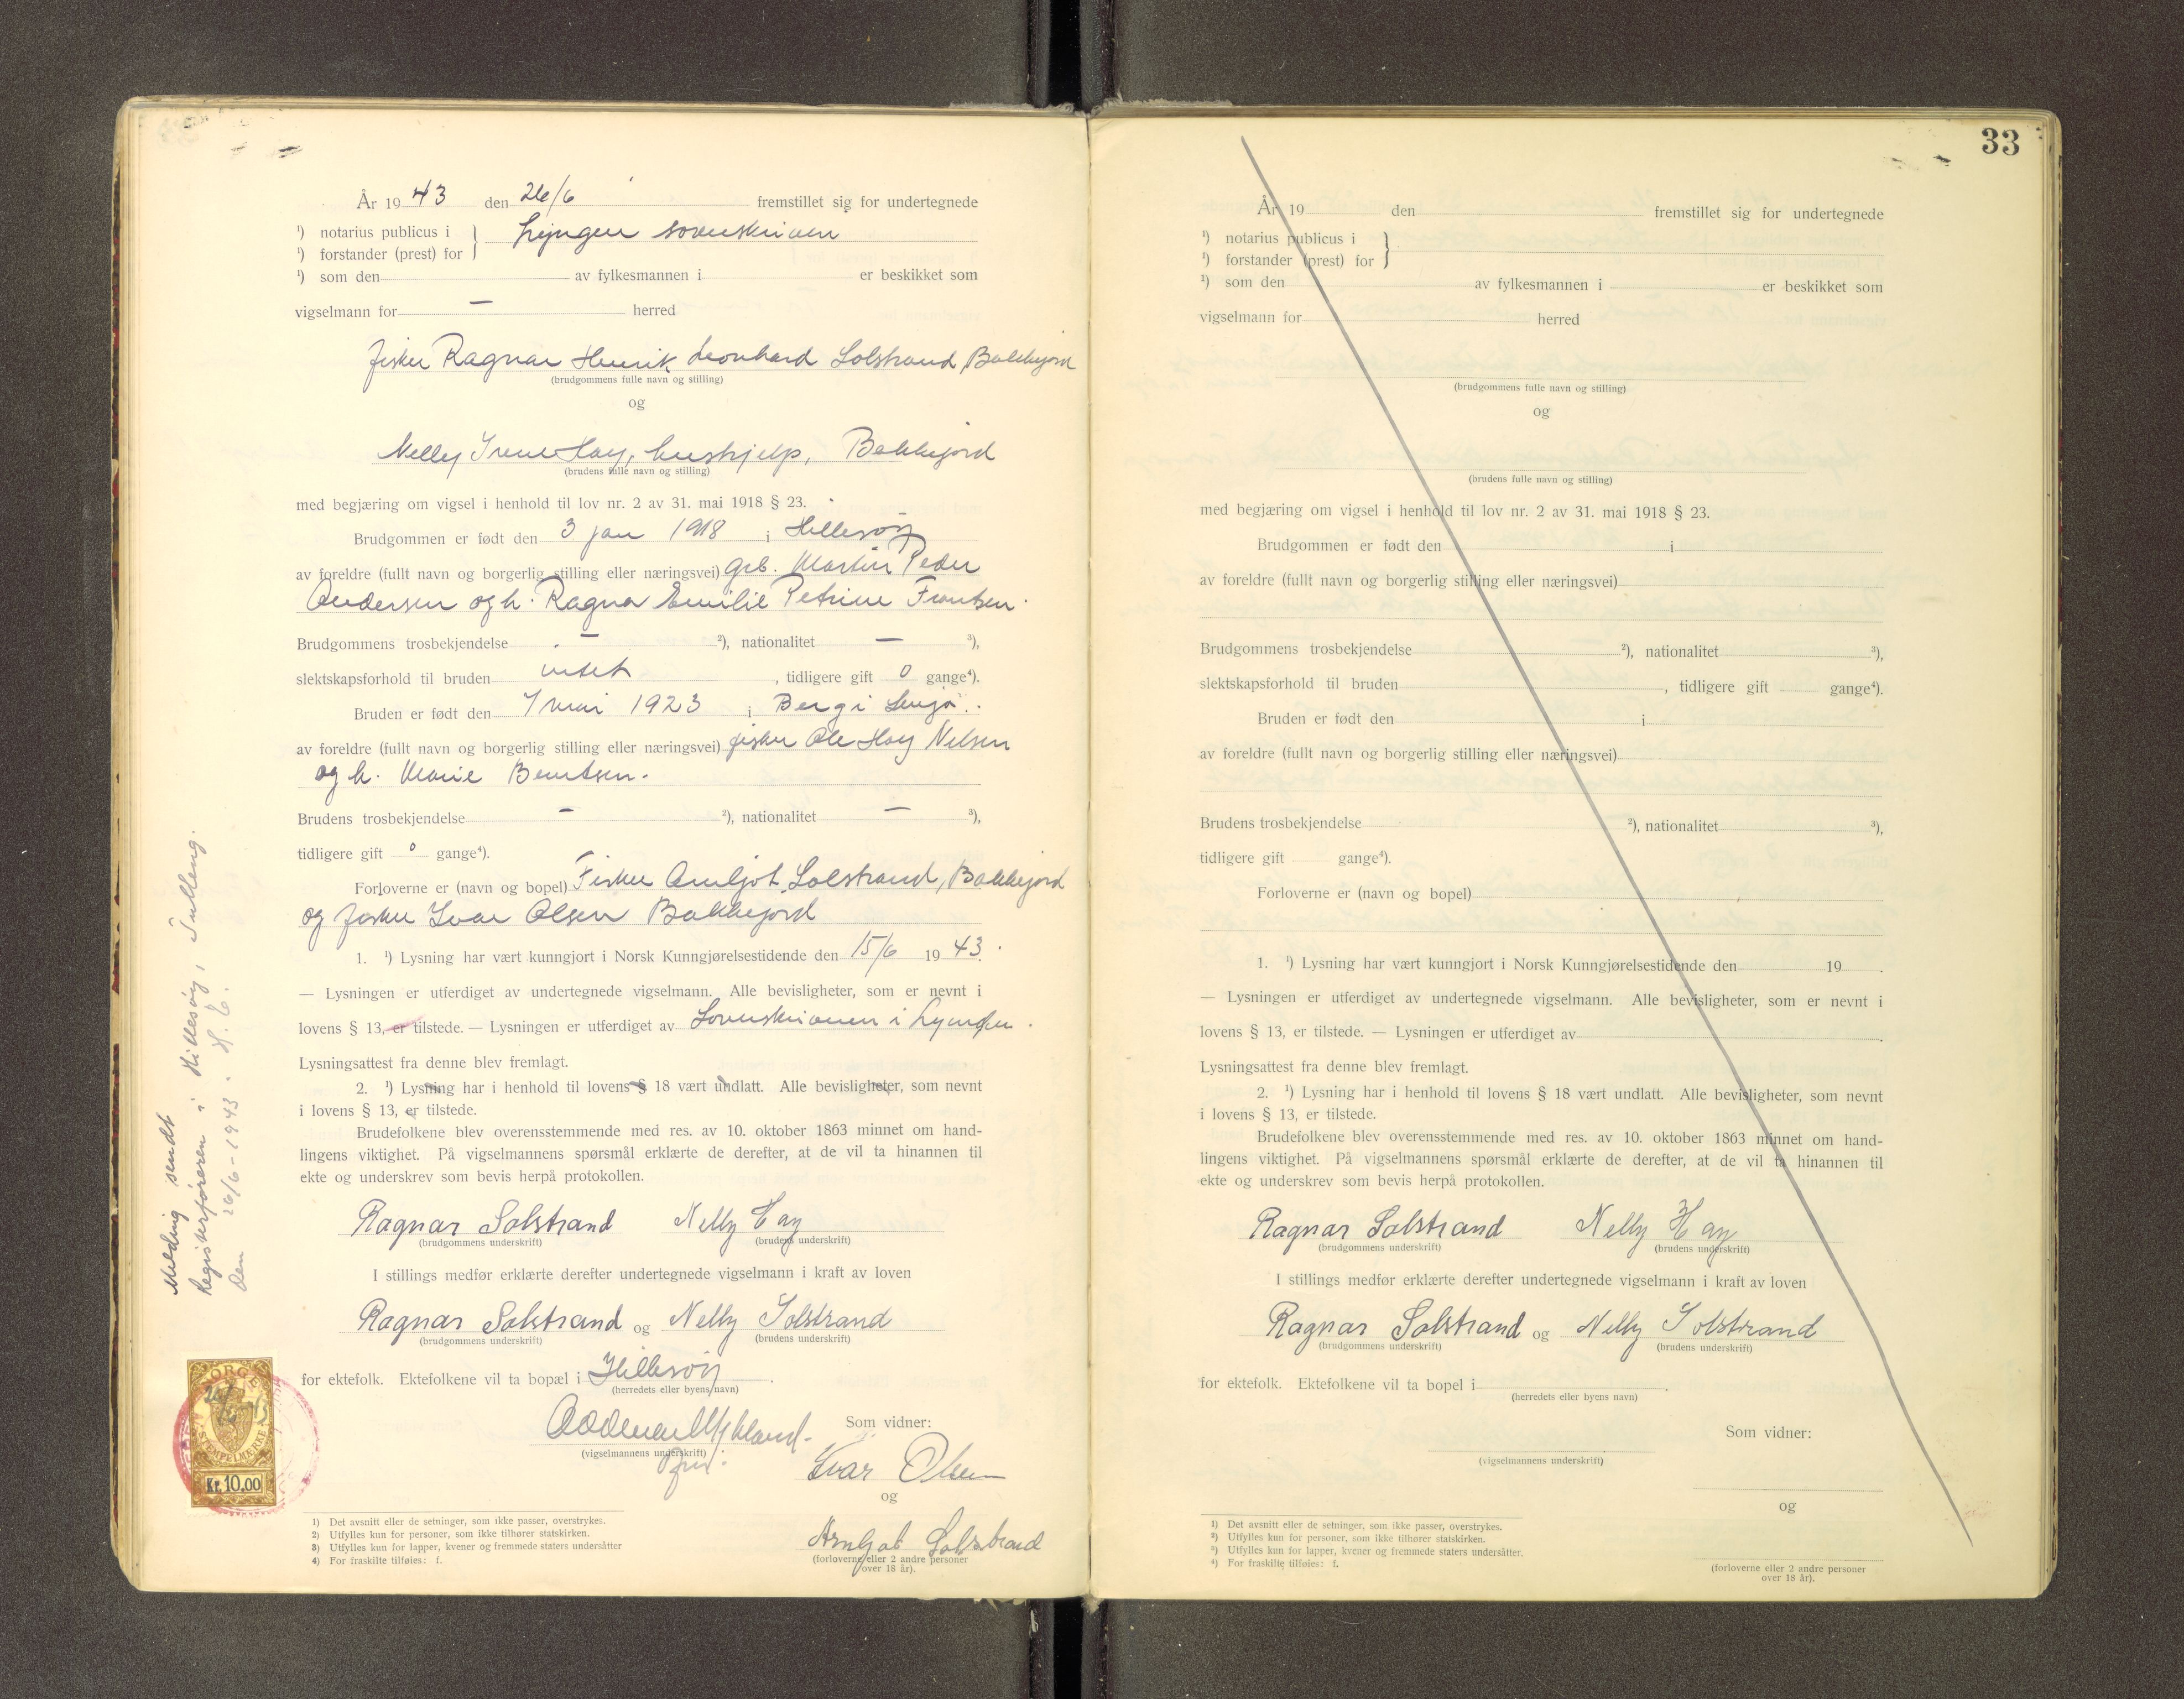 År 1943 den 26/6 fremstillet sig for undertegnede
¹) notarius publicus i } Lyngen sorenskriveri
¹) forstander (prest) for
¹) som den av fylkesmannen i er beskikket som
vigselmann for — herred
fisker Ragnar Henrik Leonhard Solstrand, Bakkejord
(brudgommens fulle navn og stilling)
og
Nelly Irene Hay, hushjelp, Bakkejord
(brudens fulle navn og stilling)
med begjæring om vigsel i henhold til lov nr. 2 av 31. mai 1918 § 23.
Brudgommen er født den 3 jan 1918 i Hillesøy
av foreldre (fullt navn og borgerlig stilling eller næringsvei) grb. Martin Peder
Andersen og h. Ragna Emilie Petrine Frantsen.
Brudgommens trosbekjendelse — ²), nationalitet — ³),
slektskapsforhold til bruden intet, tidligere gift 0 gange⁴).
Bruden er født den 7 mai 1923 i Berg i Senja.
av foreldre (fullt navn og borgerlig stilling eller næringsvei) fisker Ole Hay Nilsen
og h. Marie Berntsen.
Brudens trosbekjendelse — ²), nationalitet — ³),
tidligere gift 0 gange⁴).
Forloverne er (navn og bopel) Fisker Arnljot Solstrand, Bakkejord
og fisker Ivar Olsen Bakkejord
1. ¹) Lysning har vært kunngjort i Norsk Kunngjørelsestidende den 15/6 1943.
— Lysningen er utferdiget av undertegnede vigselmann. Alle bevisligheter, som er nevnt i
lovens § 13, er tilstede. — Lysningen er utferdiget av Sorenskriveren i Lyngen.
Lysningsattest fra denne blev fremlagt.
2. ¹) Lysning har i henhold til lovens § 18 vært undlatt. Alle bevisligheter, som nevnt
i lovens § 13, er tilstede.
Brudefolkene blev overensstemmende med res. av 10. oktober 1863 minnet om hand-
lingens viktighet. På vigselmannens spørsmål erklærte de derefter, at de vil ta hinannen til
ekte og underskrev som bevis herpå protokollen.
Ragnar Solstrand Nelly Hay
(brudgommens underskrift) (brudens underskrift)
I stillings medfør erklærte derefter undertegnede vigselmann i kraft av loven
Ragnar Solstrand og Nelly Solstrand
(brudgommens underskrift) (brudens underskrift)
for ektefolk. Ektefolkene vil ta bopæl i Hillesøy.
(herredets eller byens navn)
Som vidner:
(vigselmannens underskrift)
Ivar Olsen
og
Arnljot Solstrand
(forloverne eller 2 andre personer
over 18 år).
1) Det avsnitt eller de setninger, som ikke passer, overstrykes.
2) Utfylles kun for personer, som ikke tilhører statskirken.
3) Utfylles kun for lapper, kvener og fremmede staters undersåtter
4) For fraskilte tilføies: f.
Melding sendt
Registerføreren i Hillesøy, Tulleng.
den 26/6-1943. H.E.
NORGE
STEMPELMERKE
Kr. 10.00
33
År 19 den fremstillet sig for undertegnede
¹) notarius publicus i }
¹) forstander (prest) for
¹) som den av fylkesmannen i er beskikket som
vigselmann for herred
(brudgommens fulle navn og stilling)
og
(brudens fulle navn og stilling)
med begjæring om vigsel i henhold til lov nr. 2 av 31. mai 1918 § 23.
Brudgommen er født den i
av foreldre (fullt navn og borgerlig stilling eller næringsvei)
Brudgommens trosbekjendelse ²), nationalitet ³),
slektskapsforhold til bruden , tidligere gift gange⁴).
Bruden er født den i
av foreldre (fullt navn og borgerlig stilling eller næringsvei)
Brudens trosbekjendelse ²), nationalitet ³),
tidligere gift gange⁴).
Forloverne er (navn og bopel)
1. ¹) Lysning har vært kunngjort i Norsk Kunngjørelsestidende den 19 .
— Lysningen er utferdiget av undertegnede vigselmann. Alle bevisligheter, som er nevnt i
lovens § 13, er tilstede. — Lysningen er utferdiget av .
Lysningsattest fra denne blev fremlagt.
2. ¹) Lysning har i henhold til lovens § 18 vært undlatt. Alle bevisligheter, som nevnt
i lovens § 13, er tilstede.
Brudefolkene blev overensstemmende med res. av 10. oktober 1863 minnet om hand-
lingens viktighet. På vigselmannens spørsmål erklærte de derefter, at de vil ta hinannen til
ekte og underskrev som bevis herpå protokollen.
Ragnar Solstrand Nelly Hay
(brudgommens underskrift) (brudens underskrift)
I stillings medfør erklærte derefter undertegnede vigselmann i kraft av loven
Ragnar Solstrand og Nelly Solstrand
(brudgommens underskrift) (brudens underskrift)
for ektefolk. Ektefolkene vil ta bopel i .
(herredets eller byens navn)
Som vidner:
(vigselmannens underskrift)
og
(forloverne eller 2 andre personer
over 18 år).
¹) Det avsnitt eller de setninger, som ikke passer, overstrykes.
²) Utfylles kun for personer, som ikke tilhører statskirken.
³) Utfylles kun for lapper, kvener og fremmede staters undersåtter.
⁴) For fraskilte tilføies: f.